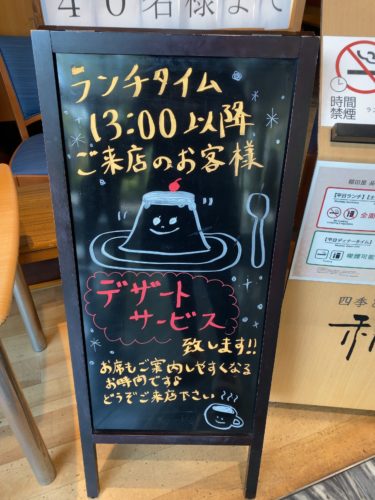 40名様まで
ランチタイム
13:00以降
ご来店のお客様
デザート
サービス
致します!!
お席もご案内しやすくなる
お時間です♪
どうぞご来店下さい
時間
禁煙
【平日ランチ】
【平日ディナータイム】
喫煙可能
四季